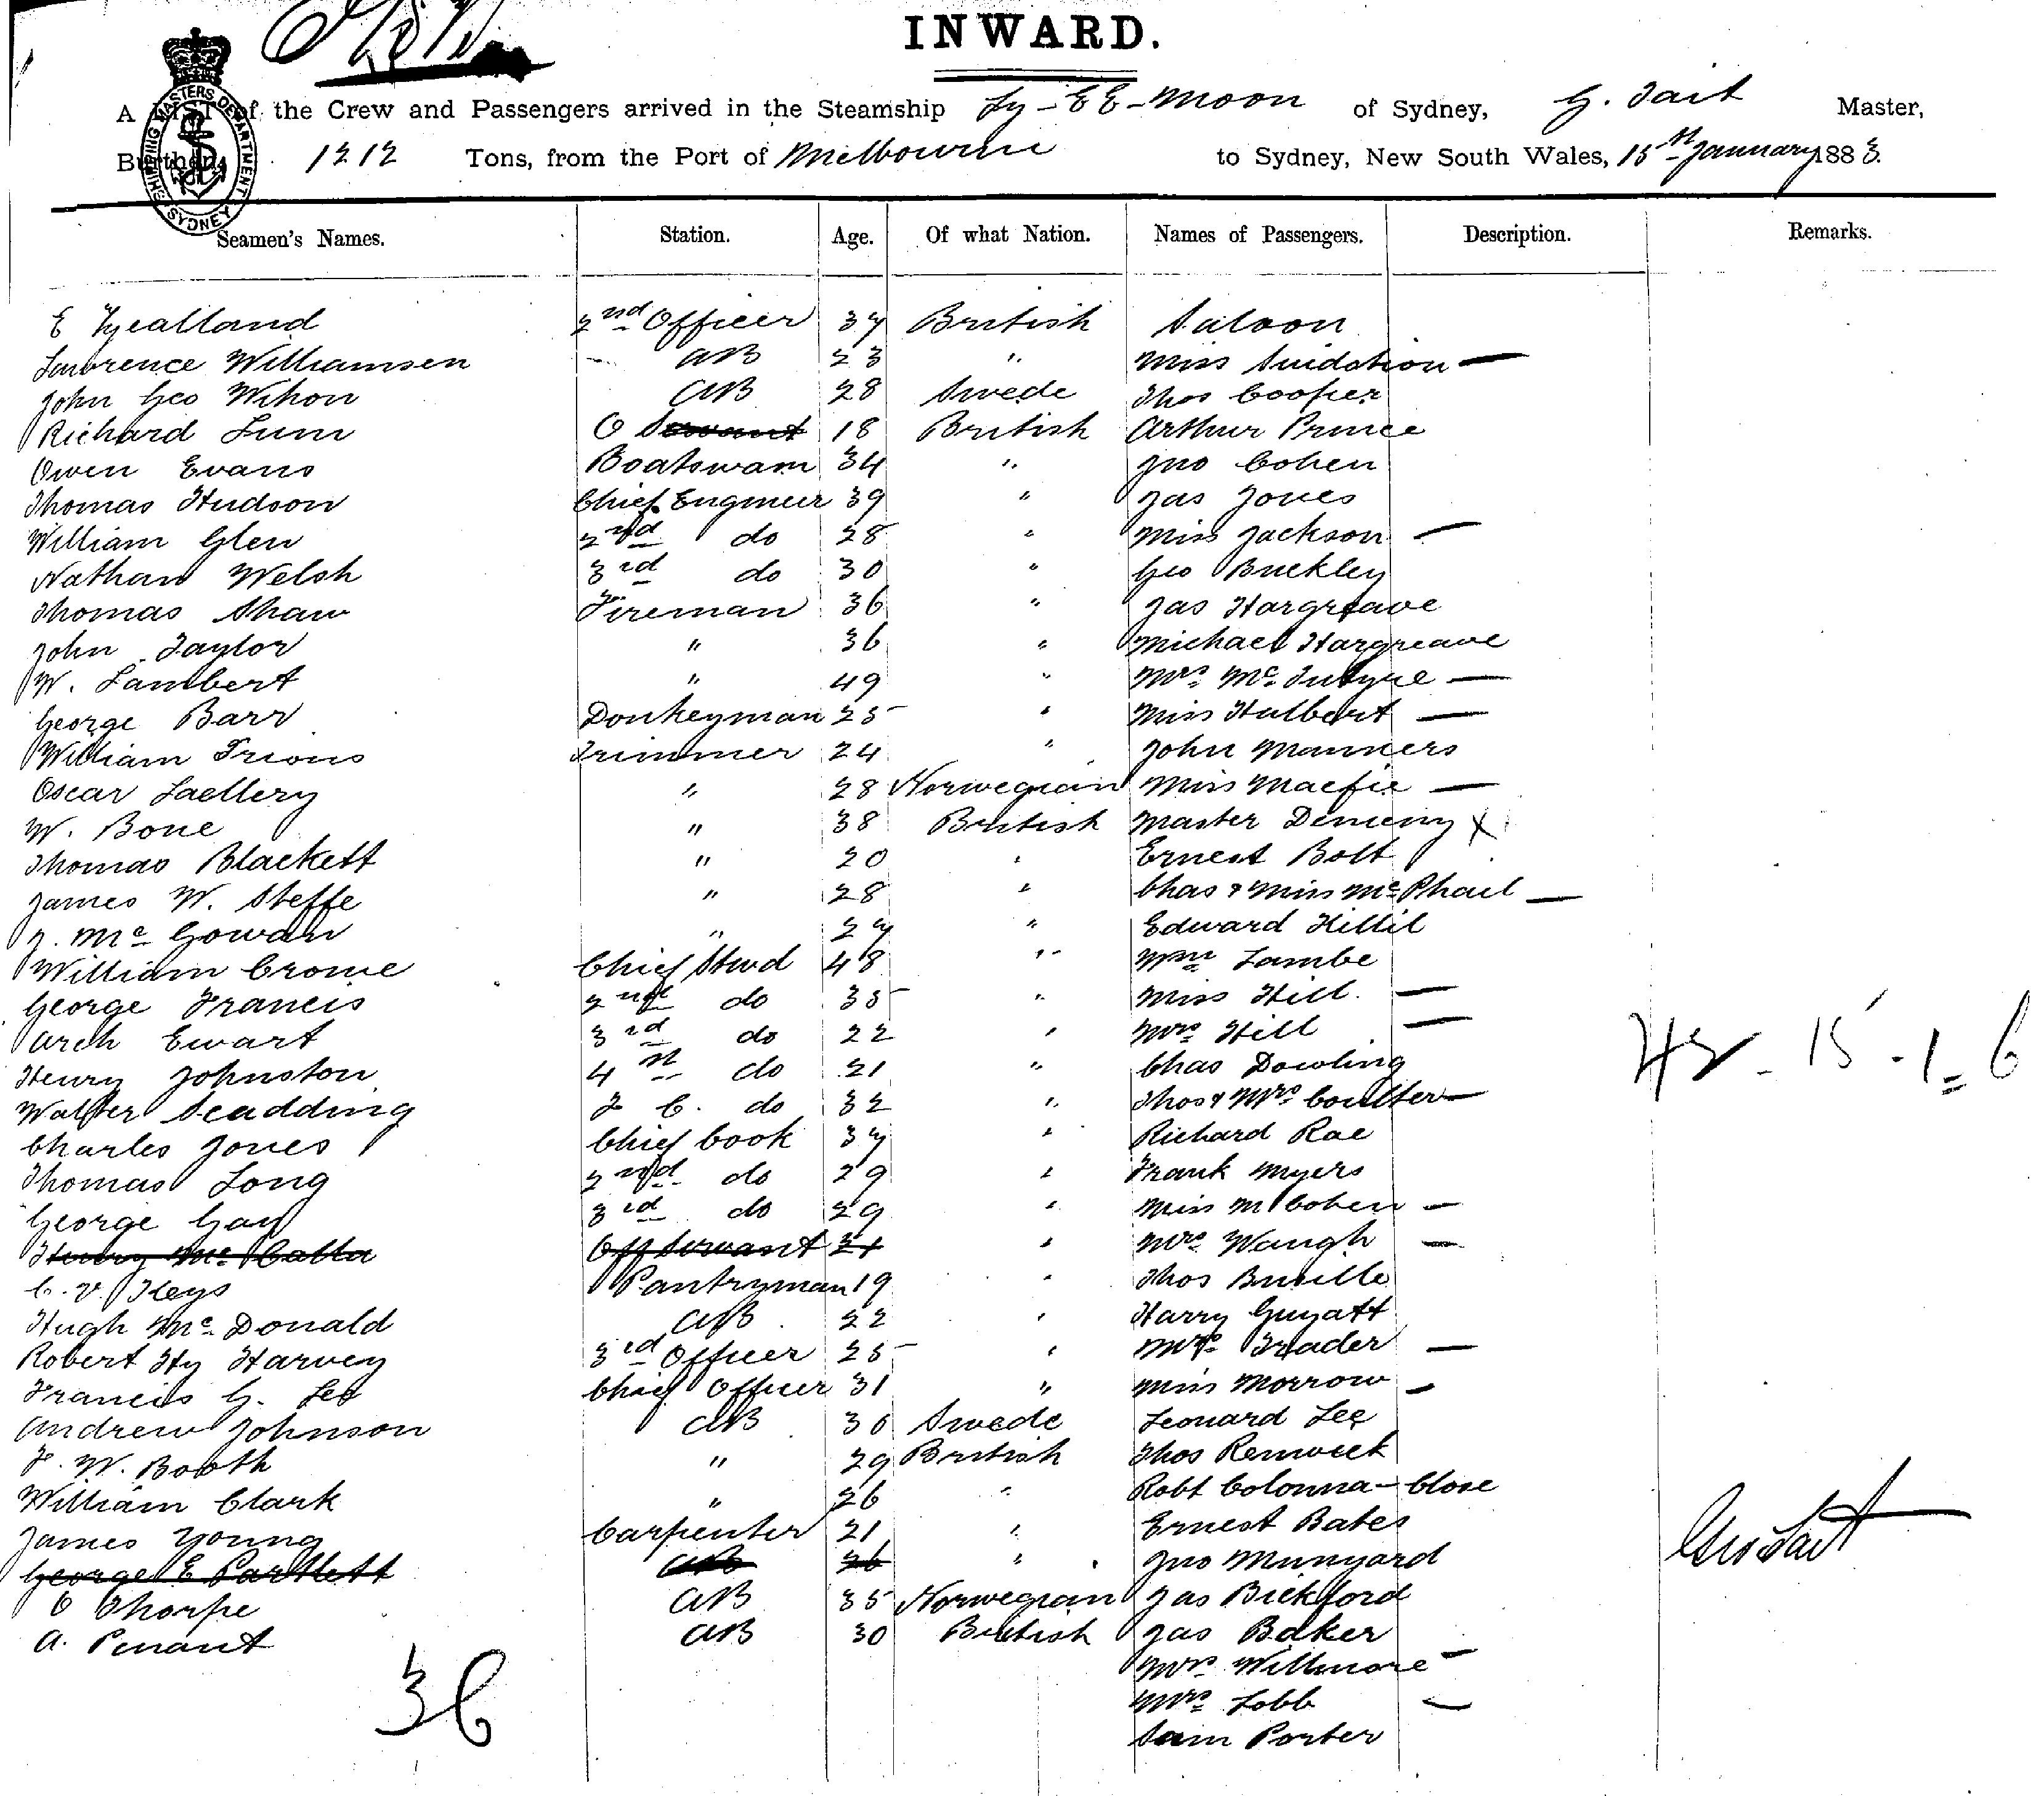 INWARD.
A LIST of the Crew and Passengers arrived in the Steamship Ly-EE-Moon of Sydney, G. Tait Master,
Burthen, 1212 Tons, from the Port of Melbourne to Sydney, New South Wales, 15th January 1883.
SHIPPING MASTERS DEPARTMENT SYDNEY
Seamen's Names. Station. Age. Of what Nation. Names of Passengers. Description. Remarks.
E Zealland 2nd Officer 37 British Saloon
Lawrence Williamsen AB 23 " Miss —
John Geo Wilson AB 28 Swede Thos Cooper
Richard Lum O Servant 18 British Arthur Prince
Owen Evans Boatswain 34 " Jno Cohen
Thomas Hudson Chief Engineer 39 " Jas Jones
William Glen 2nd do 28 " Miss Jackson —
Nathan Welsh 3rd do 30 " Geo Buckley
Thomas Shaw Fireman 36 " Jas Hargreave
John Taylor " 36 " Michael Hargreave
W. Lambert " 49 " Mrs McIntyre —
George Barr Donkeyman 25 " Miss Hulbert —
William Trimmer 24 " John Manners
Oscar " 28 Norwegian Miss Macfie —
W. Bone " 38 British Master X
Thomas Blackett " 20 " Ernest Bolt
James W. Steffe " 28 " Chas & Miss McPhail —
J. McGowan " 27 " Edward
William Crome Chief Stwd 48 " Wm Lambe
George Francis 2nd do 35 " Miss Hill. —
Arch Ewart 3rd do 22 " Mrs Hill —
Henry Johnston 4th do 21 " Chas Dowling
Walter Scadding 2 C. do 32 " Thos & Mrs Coulter —
Charles Jones Chief Cook 37 " Richard Rae
Thomas Long 2nd do 29 " Frank Myers
George Gay 3rd do 29 " Miss M Cohen —
Henry McCalla Off Servant 21 " Mrs Waugh —
C. V. Heys Pantryman 19 " Thos
Hugh McDonald AB 22 " Harry Guyatt
Robert Hy Harvey 3rd Officer 25 " Mrs Trader —
Francis G. Lee Chief Officer 31 " Miss Morrow —
Andrew Johnson AB 30 Swede Leonard Lee
F. W. Booth " 29 British Thos Renwick
William Clark " 26 " Robt Colonna-Close
James Young Carpenter 21 " Ernest Bates
George E Partlett AB 26 " Jno Munyard
C Thorpe AB 35 Norwegian Jas Bickford
A. Penant AB 30 British Jas Baker
Mrs Willmore —
Mrs Lobb —
Sam Porter
36
Geo Tait